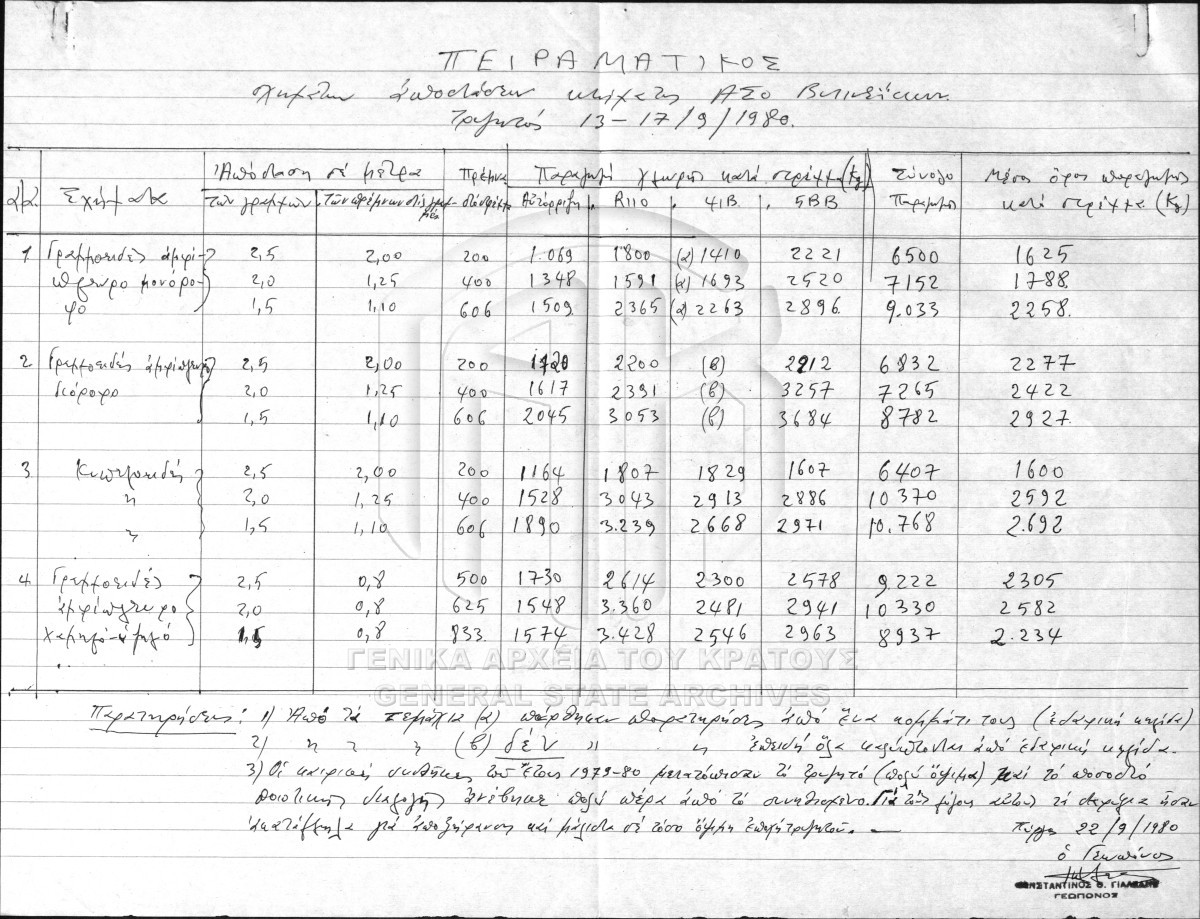 ΠΕΙΡΑΜΑΤΙΚΟΣ
σχημάτων ἀποστάσεων κτήματος ΑΣΟ
Τρυγητός 13-17/9/1980.
Ἀπόσταση σέ μέτρα Πρέμνα Παραγωγή χλωρῆς κατά στρέμμα (Kg) Σύνολο Μέσος ὅρος παραγωγῆς
α/α. Σχήματα Τῶν γραμμῶν Τῶν πρέμνων στίς γραμμές στό στρέμμα Αὐτόρριζη R110 41B. 5BB Παραγωγή κατά στρέμμα (Kg)
1 Γραμμοειδές ἀμφί- 2,5 2,00 200 1.069 1800 (α) 1410 2221 6500 1625
πλευρο μονόρο- 2,0 1,25 400 1348 1591 (α) 1693 2520 7152 1788.
φο 1,5 1,10 606 1509. 2365 (α) 2263 2896. 9.033 2258.
2 Γραμμοειδές ἀμφίπλευρο 2,5 2,00 200 1720 2200 (β) 2912 6832 2277
διόροφο 2,0 1,25 400 1617 2391 (β) 3257 7265 2422
1,5 1,10 606 2045 3053 (β) 3684 8782 2927.
3. Κυπελλοειδές 2,5 2,00 200 1164 1807 1829 1607 6407 1600
" 2,0 1,25 400 1528 3.043 2913 2886 10370 2592
" 1,5 1,10 606 1890 3.239 2668 2971 10.768 2.692
4. Γραμμοειδές 2,5 0,8 500 1730 2614 2300 2578 9.222 2305
ἀμφίπλευρο 2,0 0,8 625 1548 3.360 2481 2941 10330 2582
χαμηλό 1,5 0,8 833. 1574 3.428 2546 2963 8937 2.234
ΓΕΝΙΚΑ ΑΡΧΕΙΑ ΤΟΥ ΚΡΑΤΟΥΣ
GENERAL STATE ARCHIVES
Παρατηρήσεις: 1) Ἀπό τά τεμάχια (α) πάρθηκαν παρατηρήσεις ἀπό ἕνα κομμάτι τους (ἐδαφική κηλίδα)
2) " " " (β) δέν " " ἐπειδή ὅλα καλύπτονται ἀπό ἐδαφική κηλίδα.
3) Οἱ καιρικές συνθῆκες τοῦ ἔτους 1979-80 μετατόπισαν τό τρυγητό (πολύ ὄψιμα) καί τό ποσοστό
ποιοτικῆς διαλογῆς ἀνέβηκε πολύ πέρα ἀπό τό συνηθισμένο. Γιά τούς λόγους αὐτούς τά σταφύλια ἦσαν
ἀκατάλληλα γιά ἀποξήρανση καί μάλιστα σέ τόσο ὄψιμη ἐποχή τρυγητοῦ.
Πύργος 22/9/1980
ὁ Γεωπόνος
ΚΩΝΣΤΑΝΤΙΝΟΣ Θ.
ΓΕΩΠΟΝΟΣ